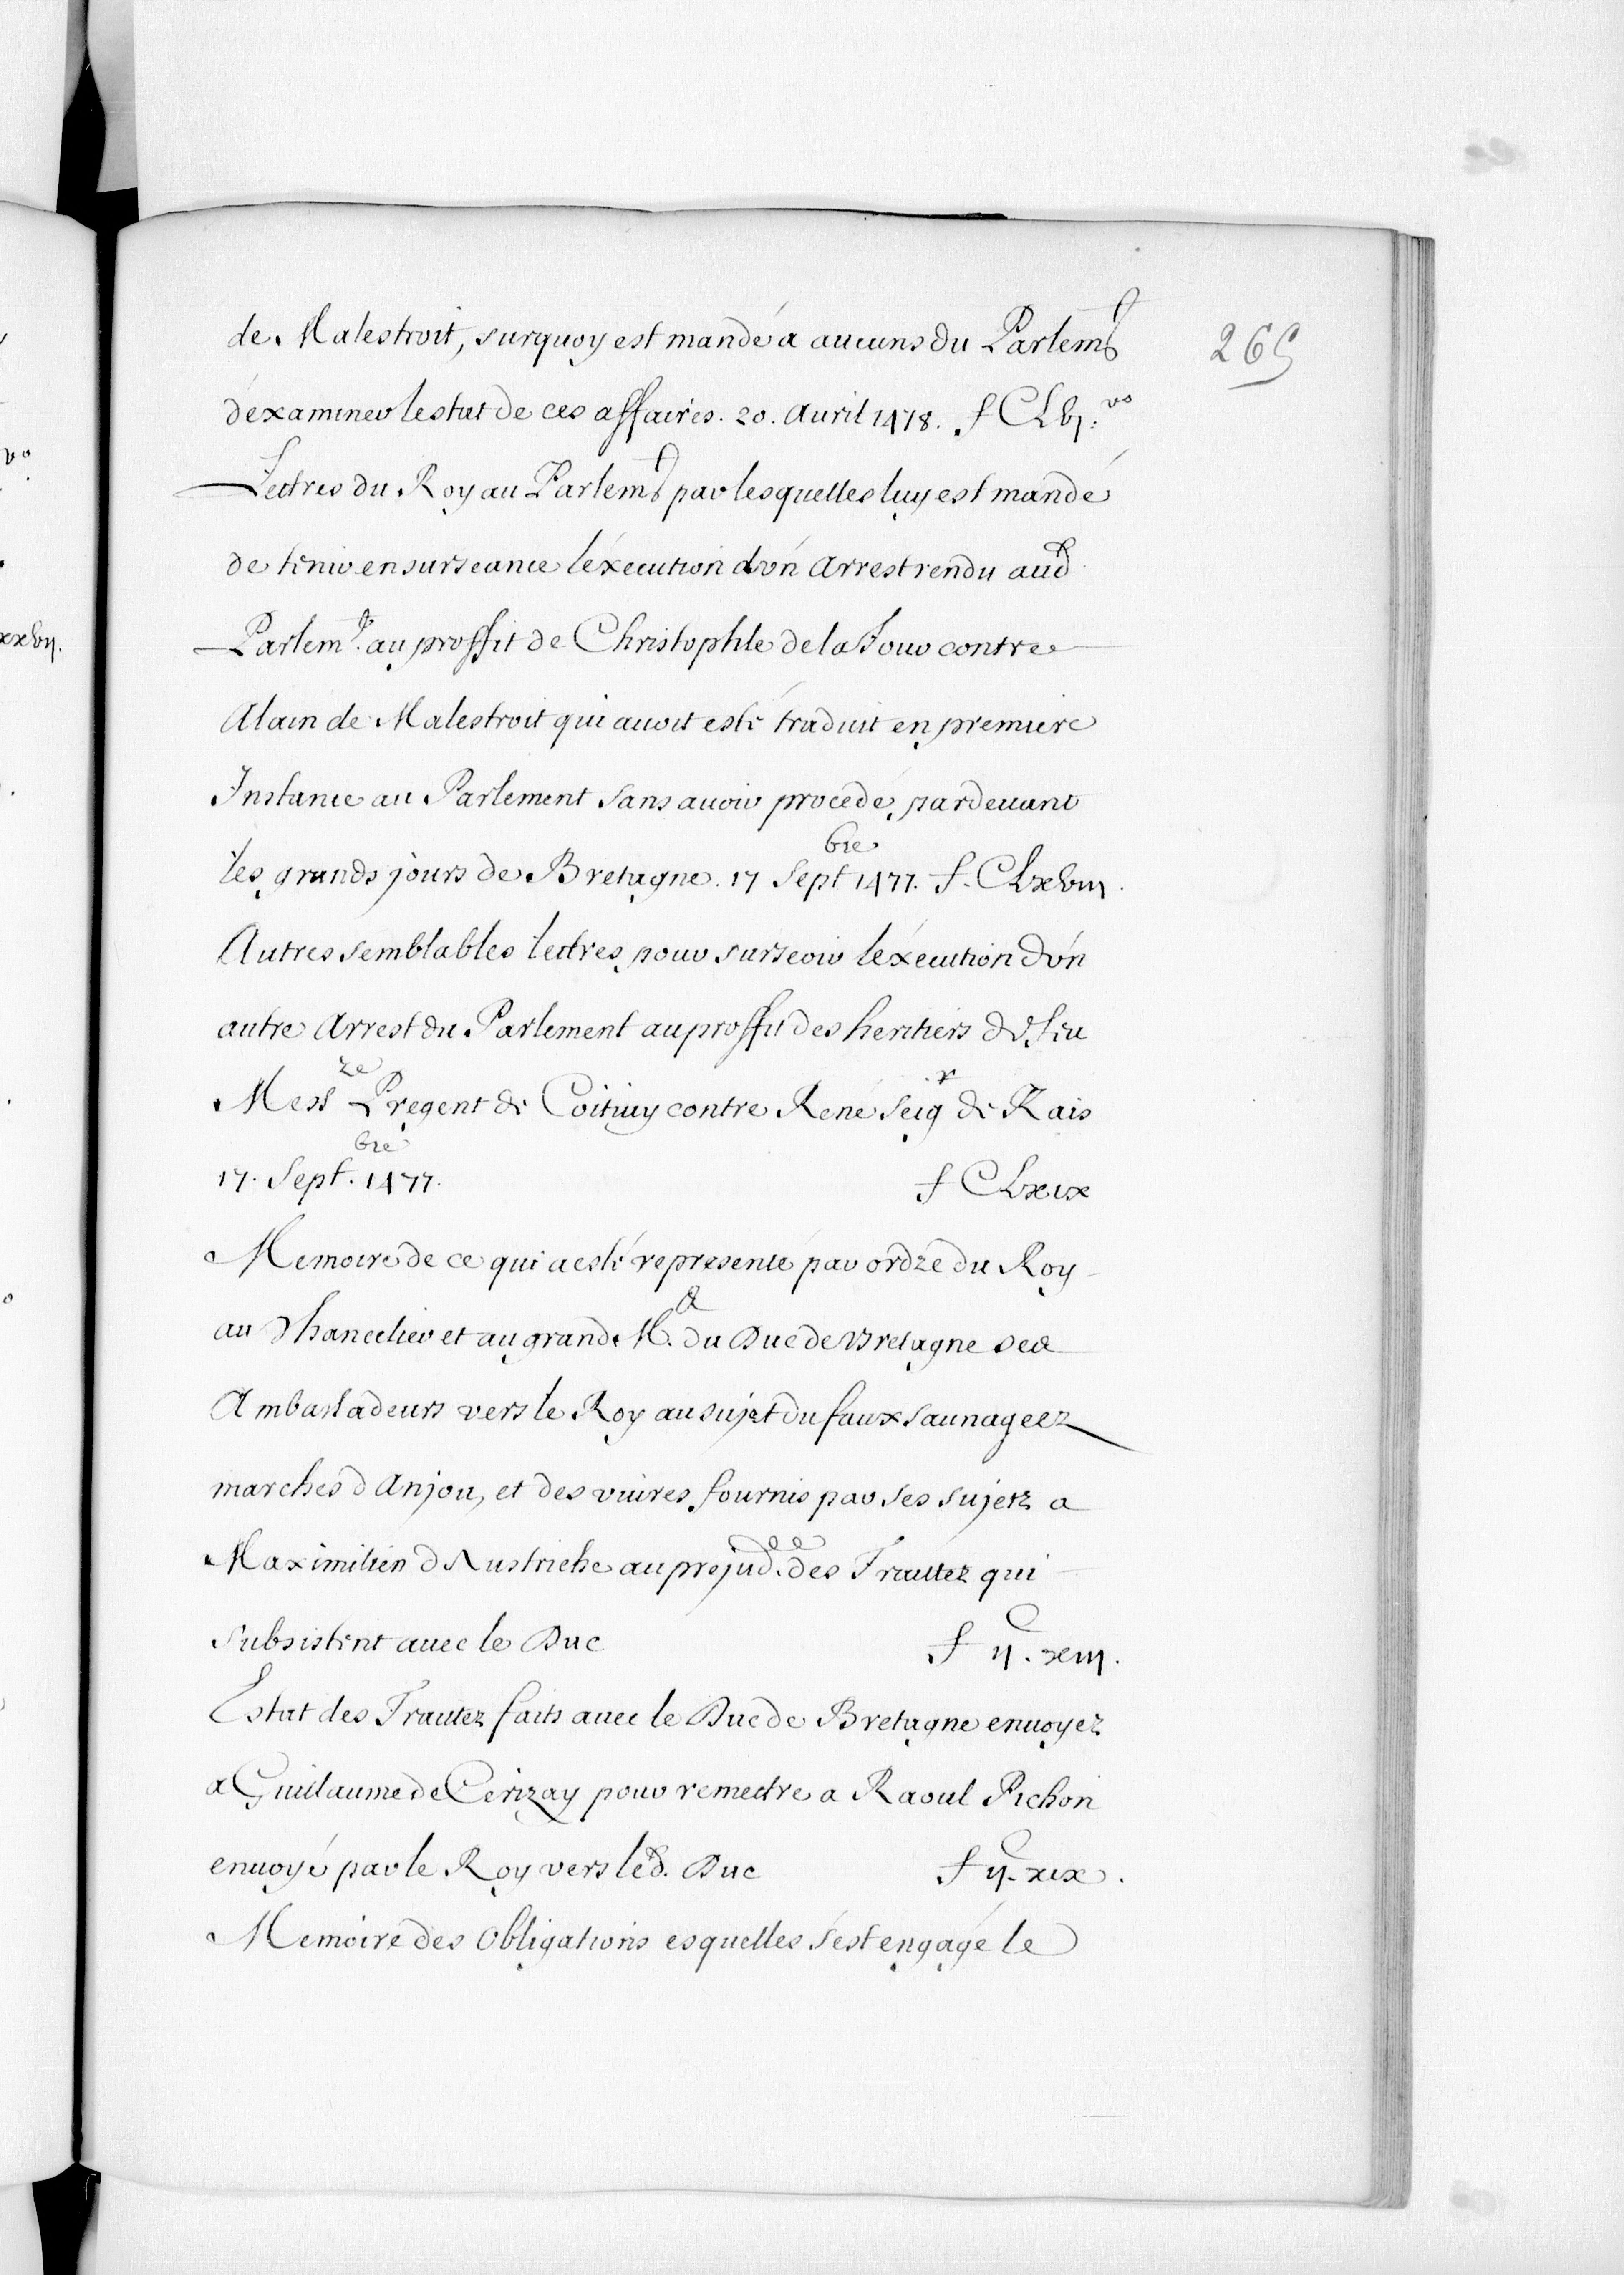 265
de Malestroit, surquoy est mandé a aucuns du Parlemt
d'examiner lestat de ces affaires. 20. Auril 1478. f CLvj. vo
Lettres du Roy au Parlemt par lesquelles luy est mandé
de tenir en surseance l'éxecution d'vn Arrest rendu aud
Parlemt. au proffit de Christophle de la Tour contre
Alain de Malestroit qui auoit esté traduit en premiere
Instance au Parlement sans auoir procedé pardeuant
les grands jours de Bretagne. 17 Septbre 1477. f. CLxviij.
Autres semblables lettres pour surseoir l'éxecution d'vn
autre Arrest du Parlement au proffit des heritiers de feu
Messre Pregent de Coitiuy contre René seigr de Rais
17. Septbre. 1477. f CLxix
Memoire de ce qui a esté representé par ordre du Roy
au Chancelier et au grand Me. du Duc de Bretagne ses
Ambassadeurs vers le Roy au sujet du faux saunage ez
marches d'Anjou, et des viures fournis par ses sujetz a
Maximilien d'Austriche au prejudce. des Traitez qui
subsistent auec le Duc f ijC. xiij.
Estat des Traitez faits auec le Duc de Bretagne enuoyez
a Guillaume de Cerizay pour remettre a Raoul Pichon
enuoyé par le Roy vers led. Duc f ijC. xix.
Memoire des obligations esquelles s'est engagé le
xxvij.
vo